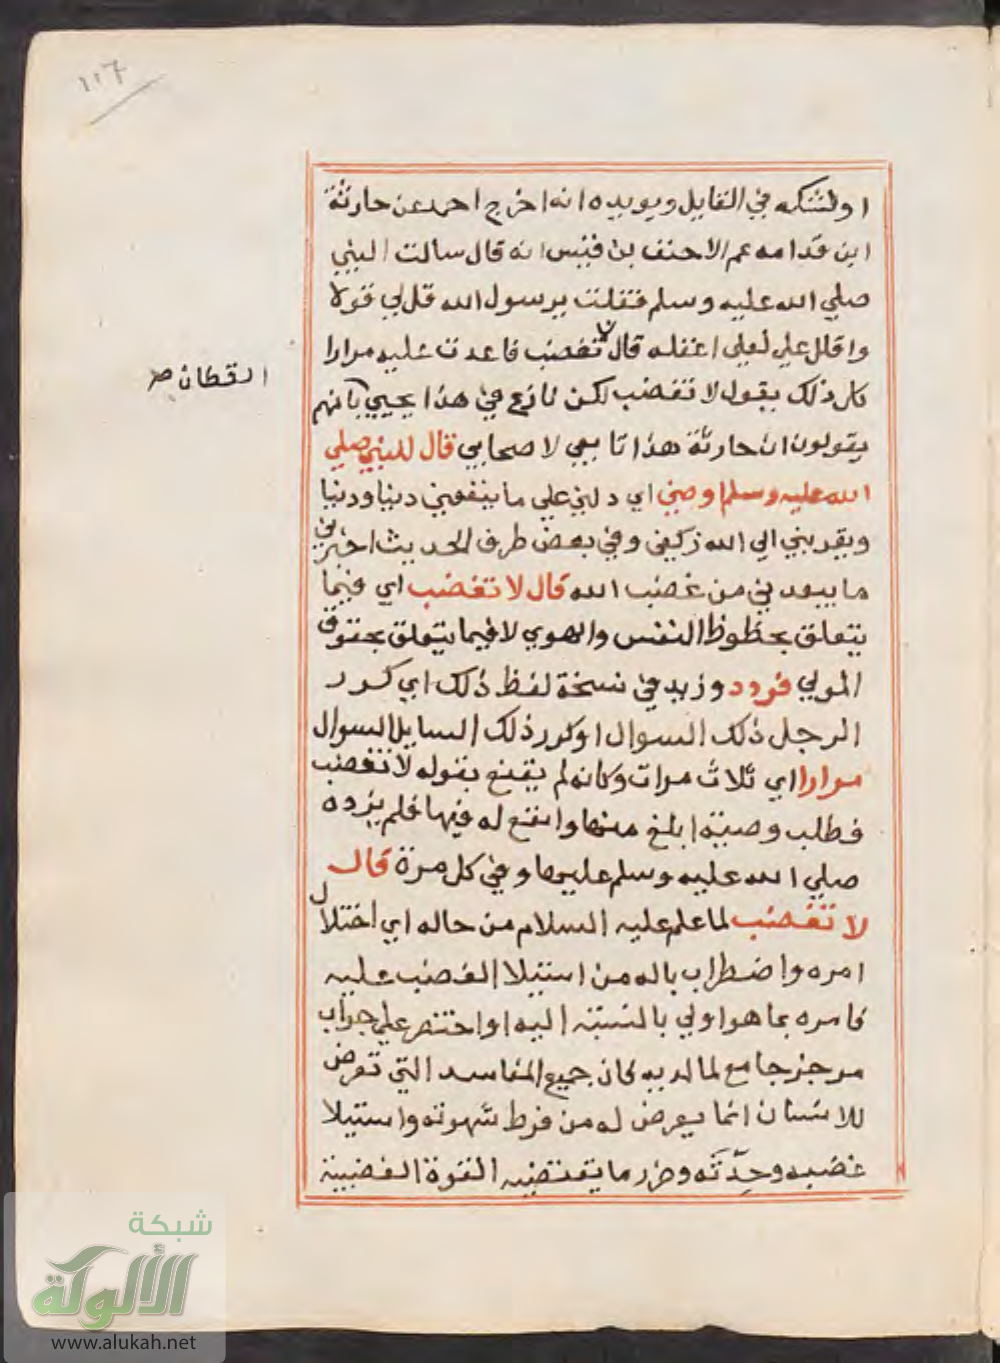 ١١٦
او لشكه في القايل ويويده انه اخرج احمد عن حارثة
ابن قدامه عم الاحنف بن قيس انه قال سالت النبي
صلي الله عليه وسلم فقلت يرسول الله قل لي قولا
واقلل علي لعلي اعقله قال لا تغضب فاعدت عليه مرارا
كل ذلك يقول لا تغضب لكن نازع في هذا يحيي بانهم
القطان صح
يقولون ان حارثة هذا تابعي لا صحابي قال للنبي صلي
الله عليه وسلم اوصني اي دلني علي ما ينفعني دينا ودنيا
ويقربني الي الله زلفي وفي بعض طرق الحديث اخبرني
ما يبعدني من غضب الله قال لا تغضب اي فيما
يتعلق بحظوظ النفس والهوي لا فيما يتعلق بحقوق
المولي فردد وزيد في نسخة لفظ ذلك اي كرر
الرجل ذلك السوال او كرر ذلك السايل السوال
مرارا اي ثلاث مرات وكانه لم يقنع بقوله لا تغضب
فطلب وصية ابلغ منها وانفع له فيها فلم يزده
صلي الله عليه وسلم عليها وفي كل مرة قال
لا تغضب لما علم عليه السلام من حاله اي اختلال
امره واضطراب باله من استيلا الغضب عليه
فامره بما هو اولي بالنسبة اليه او اختصر علي جواب
موجز جامع لما لديه فان جميع المفاسد التي تعرض
للانسان انما يعرض له من فرط شهوته واستيلا
غضبه وحدته وضرر ما يقتضيه القوة الغضبية
شبكة
الألوكة
www.alukah.net